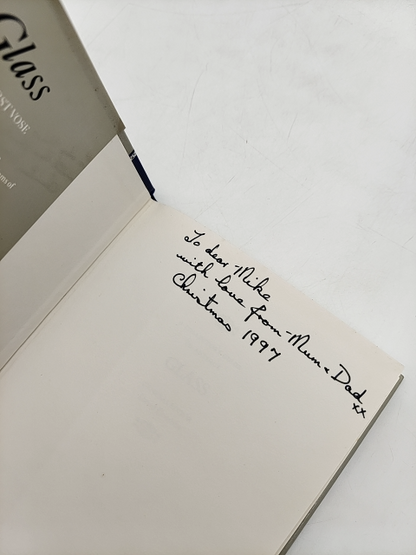 Glass
VOSE
To dear Mike
with love from Mum & Dad
xx
Christmas 1997